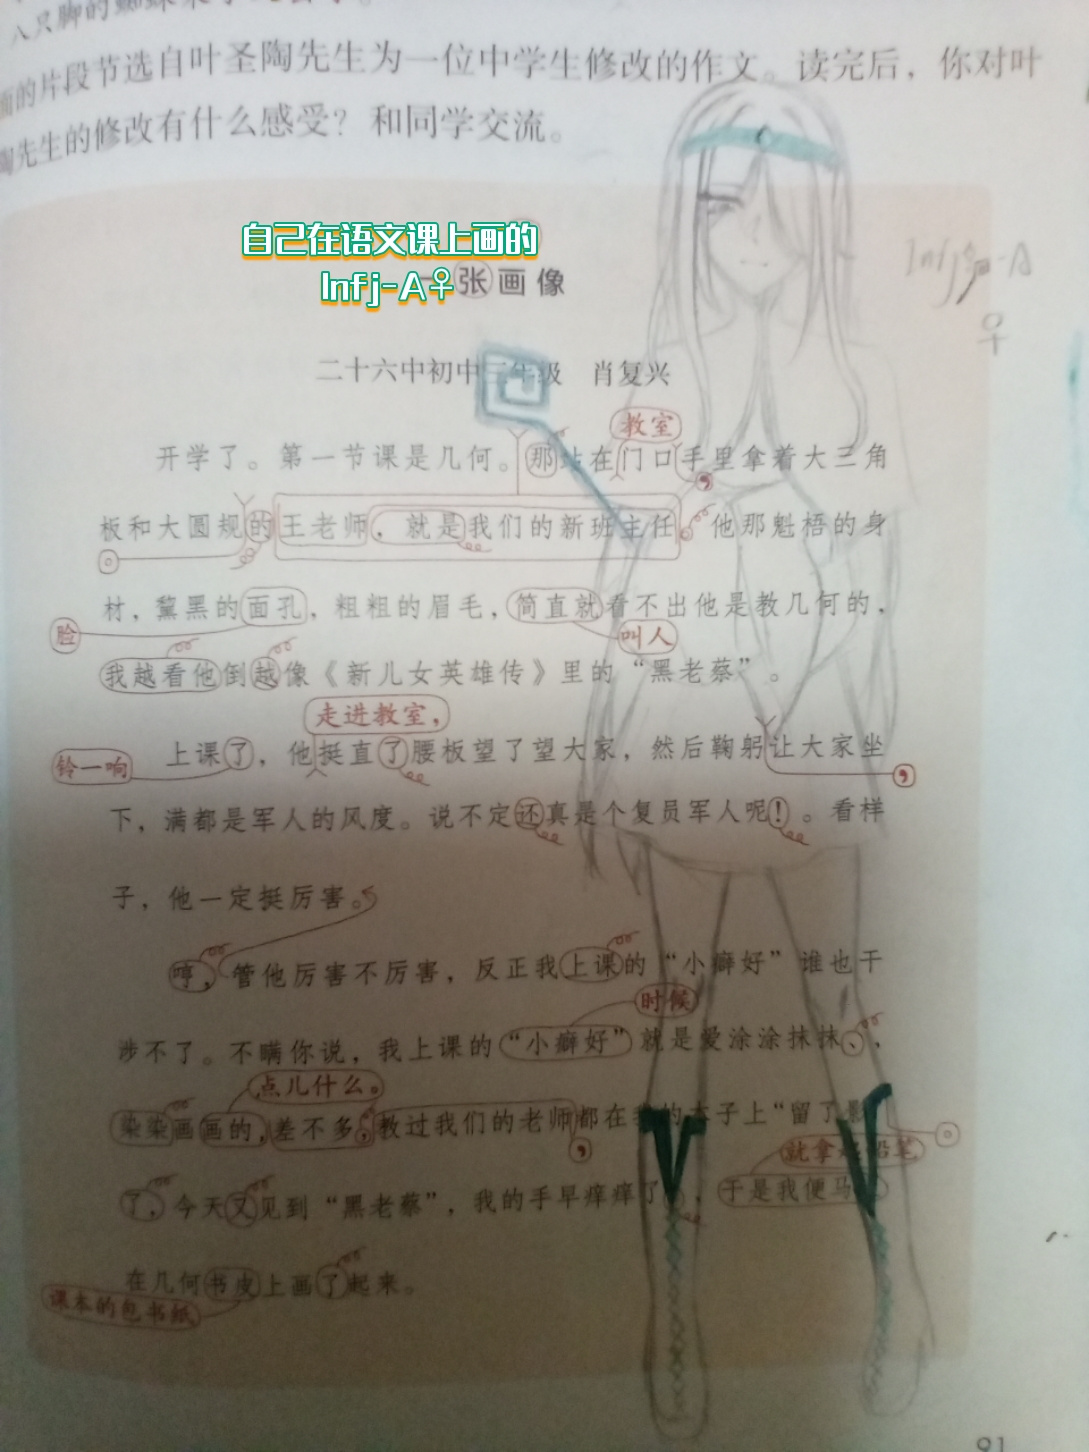 八只脚的蜘蛛
面的片段节选自叶圣陶先生为一位中学生修改的作文。读完后，你对叶
陶先生的修改有什么感受？和同学交流。
自己在语文课上画的
Infj-A♀
一张画像
Infj-A
♀
二十六中初中三年级 肖复兴
教室
开学了。第一节课是几何。那站在门口手里拿着大三角
，
板和大圆规的王老师，就是我们的新班主任。他那魁梧的身
。
材，黧黑的面孔，粗粗的眉毛，简直就看不出他是教几何的，
脸
叫人
我越看他倒越像《新儿女英雄传》里的“黑老蔡”。
走进教室，
铃一响
上课了，他挺直了腰板望了望大家，然后鞠躬让大家坐
，
下，满都是军人的风度。说不定还真是个复员军人呢！。看样
子，他一定挺厉害。
哼，管他厉害不厉害，反正我上课的“小癖好”谁也干
时候
涉不了。不瞒你说，我上课的“小癖好”就是爱涂涂抹抹、，
点儿什么。
染染画画的，差不多，教过我们的老师都在我的本子上“留了影
。
，
就拿起铅笔
了，今天又见到“黑老蔡”，我的手早痒痒了，于是我便马
在几何书皮上画了起来。
课本的包书纸
91